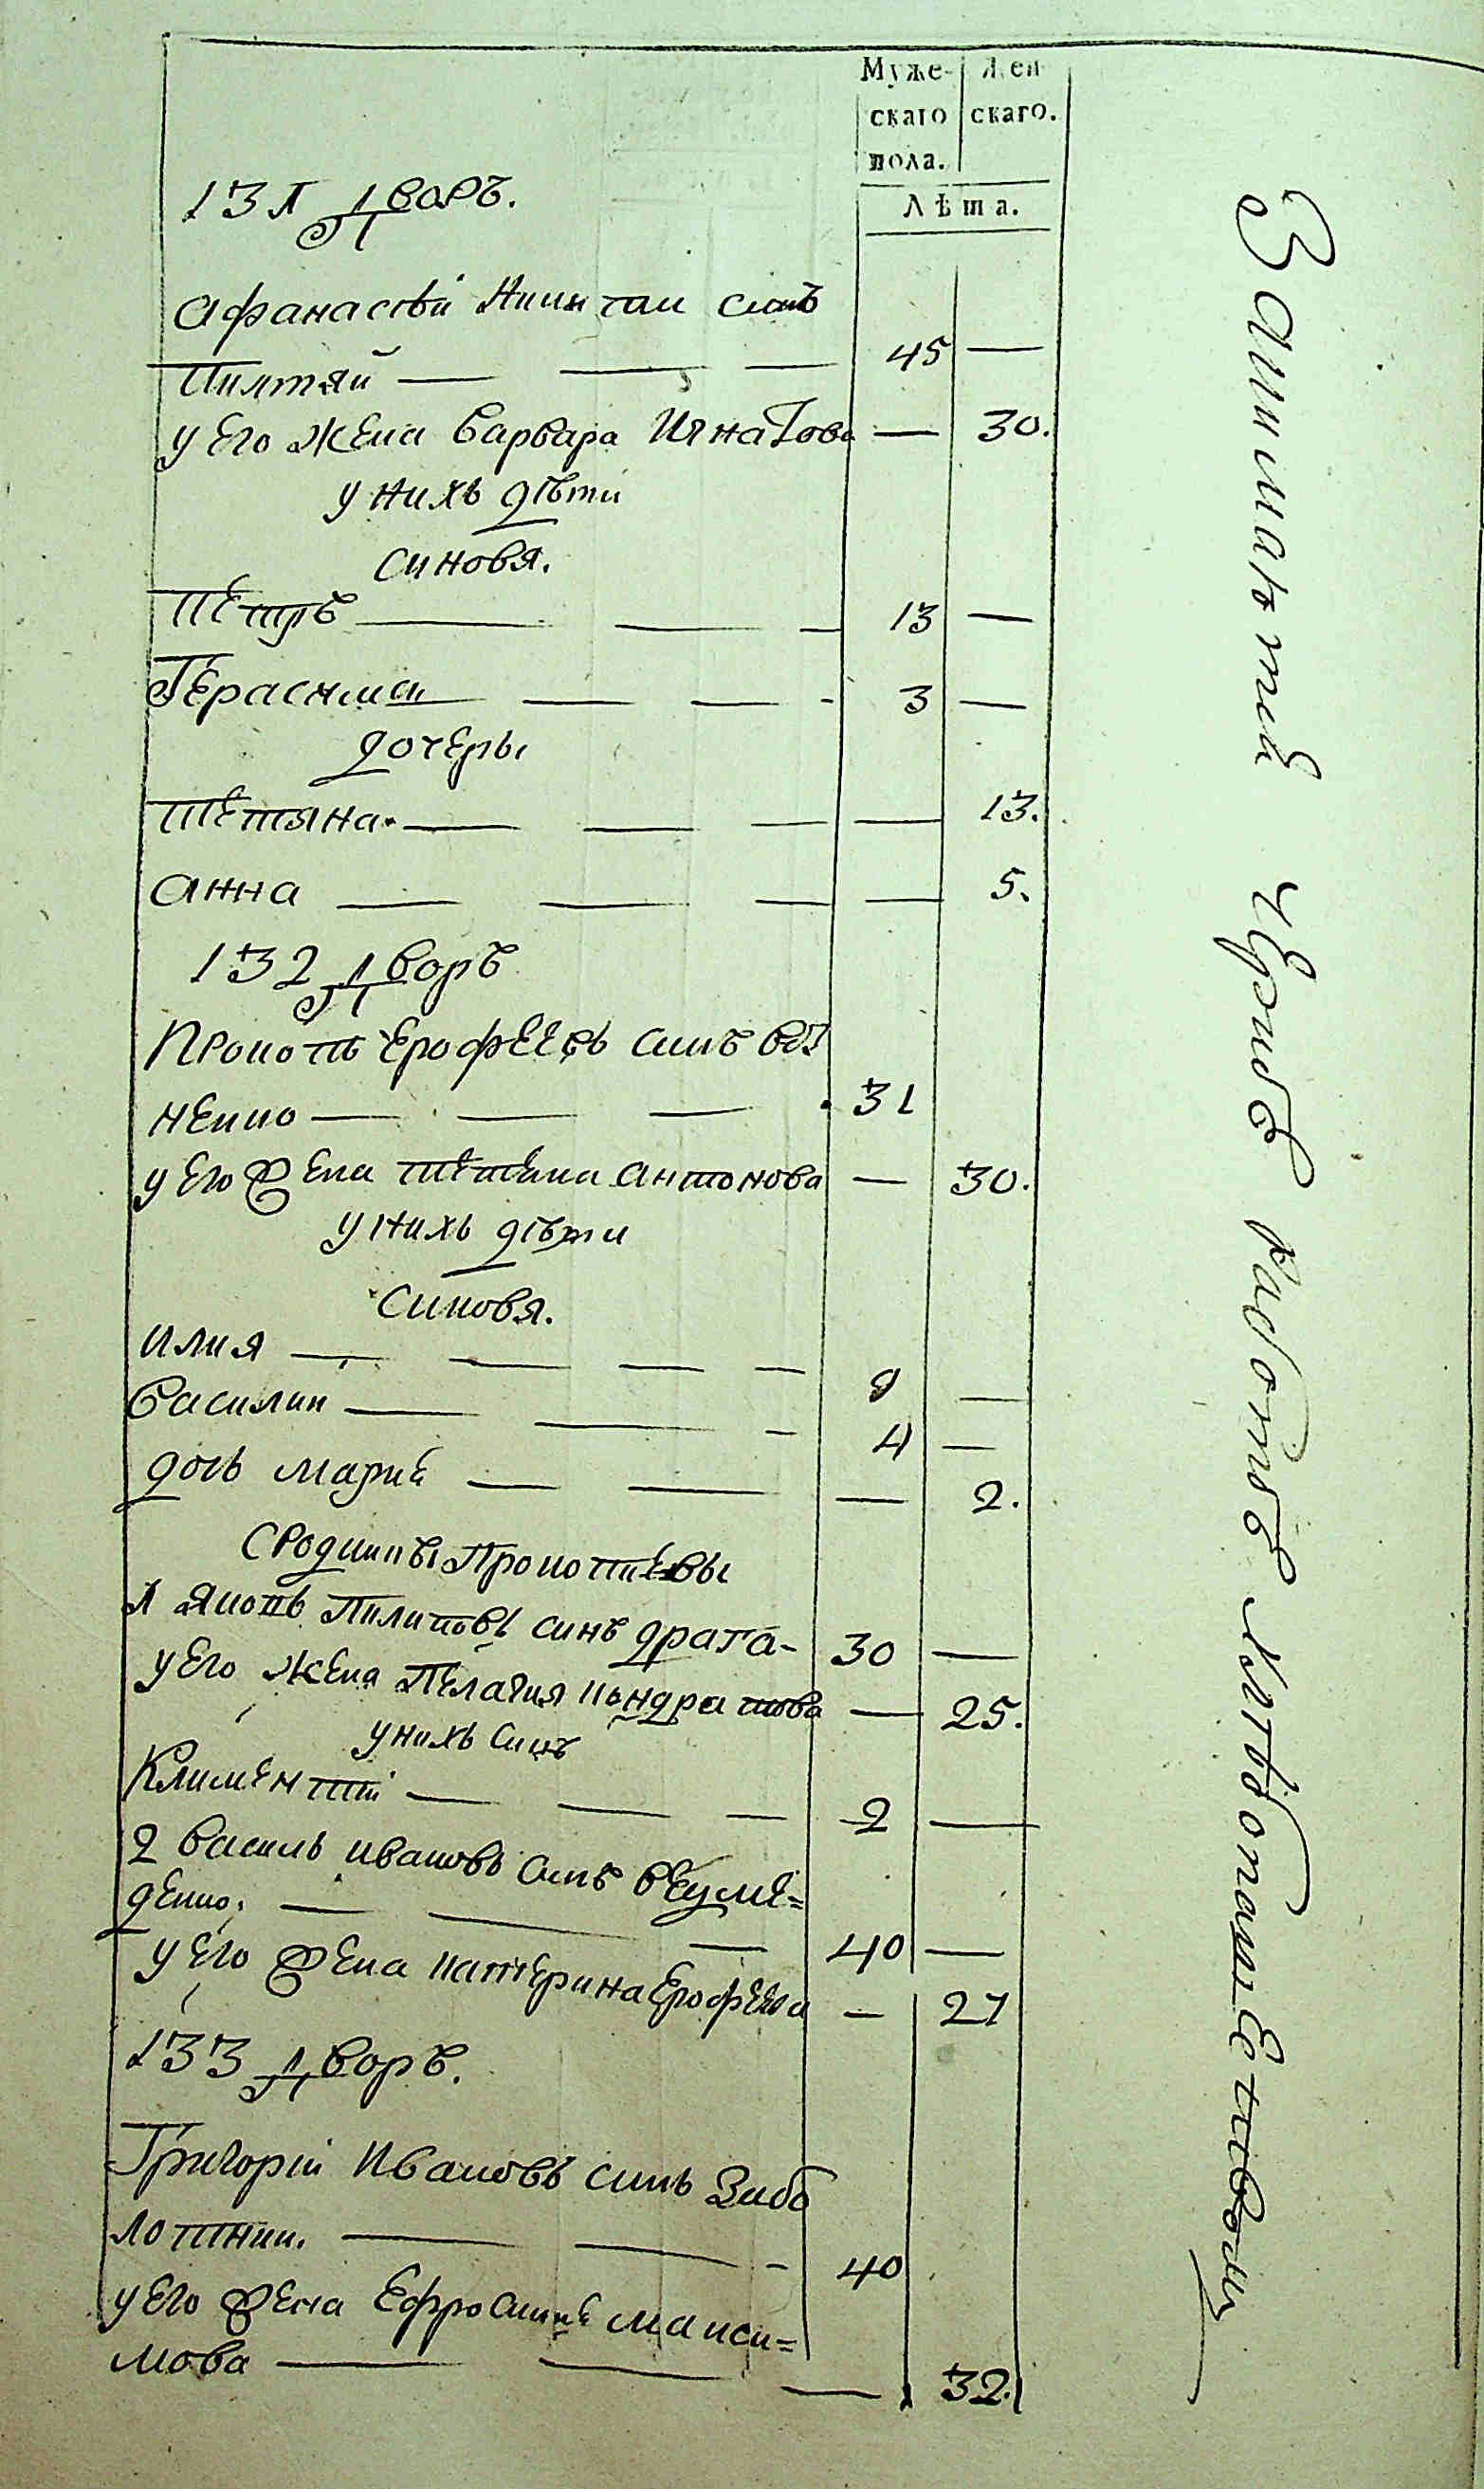 Муже- Жен
скаго скаго.
пола.
Лѣта.
131 Дворъ.
Афанасѣй Никитаи синъ
Пилтяй — 45 —
У Его Жена Варвара Игнатова — 30.
У нихъ дѣти
Синовя.
Петръ — 13 —
Герасима — 3 —
дочеры
Тетяна — — 13.
Анна — — 5.
132 Дворъ
Прокопъ Ерофеевъ синъ
ненко — 31
У Его Жена Тетяна Антонова — 30.
У нихъ дѣти
Синовя.
Илия — 9 —
Василии — 4 —
дочь Мария — — 2.
Сродники Прокопиевы
1 Якопъ Пилиповъ синъ драга- 30 —
У Его Жена Пелагия Кондратова — 25.
У нихъ синъ
Климентий — 2 —
2 Василь Ивановъ синъ
денко. — 40 —
У Его Жена Катерина Ерофеева — 27
133 Дворъ.
Григорий Ивановъ синъ Забо
лотнии. — 40
У Его Жена Ефросиния Макси=
мова — — 32.
работѣ